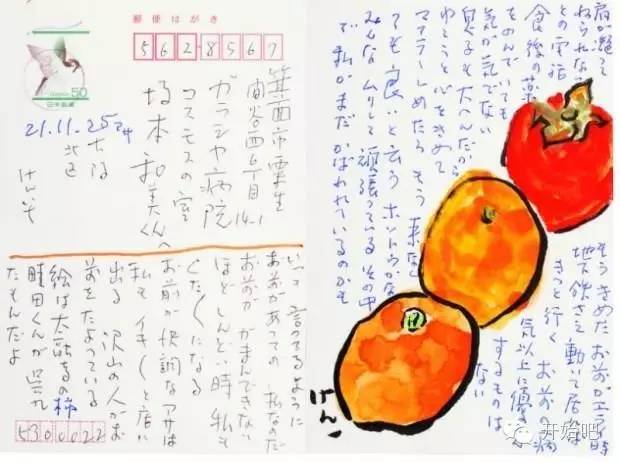 郵便はがき
562-8567
50
日本郵便
箕面市粟生
間谷西6丁目14-1
ガラシヤ病院
コスモスの室
坂本和美くんへ
21.11.25アサ
大阪
北区
けんいち
いつも言ってるように
お前があっての私なのだ
お前ががまんできない
ほどしんどい時私も
くたくたになる
お前が快調なアサは
私もイキイキと店に
出る 沢山の人がお
前をたよっている
絵は 柿
時田くんが呉れ
たもんだよ
5300022
肩が凝って
ねられない
との電話
食後の薬
をのんでいても
気が気でない
大へんだから
ゆこうと心をきめて
マフラーしめたらもう来なく
ても良いと云う ホントウかな
みんなムリして頑張っているその中
で私がまだかばわれているのかも
もうきめた お前が 時
地下鉄さえ動いて居れば
きっと行く お前の病
気以上に優先
するものは
ない
けん
开始吧